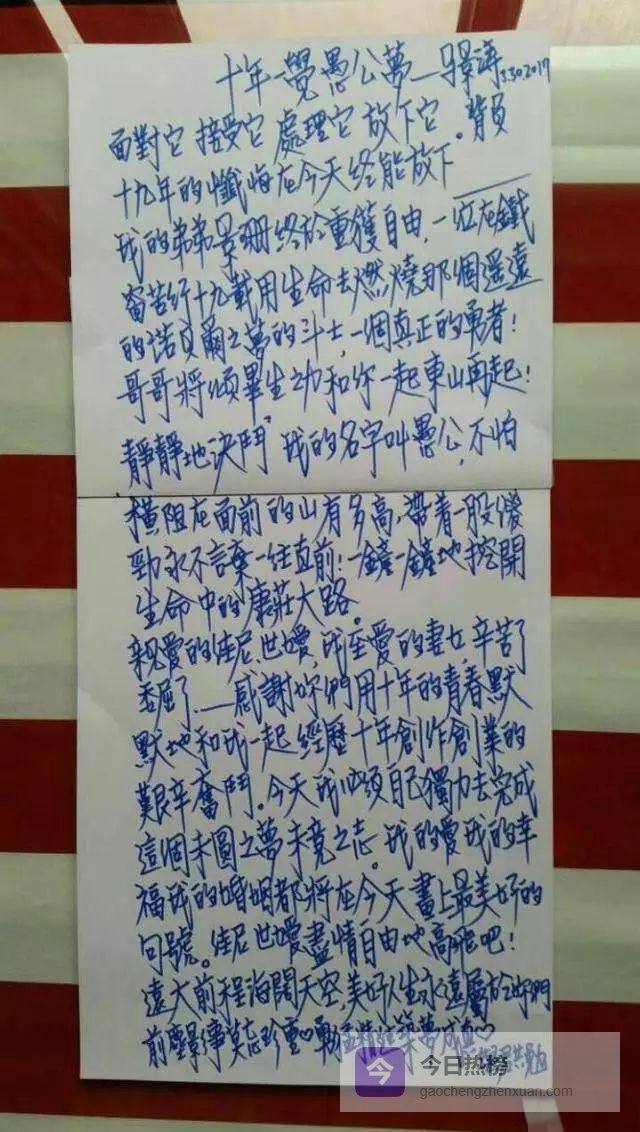 十年一覺愚公夢—景濤 3.30.2017
面對它 接受它 處理它 放下它。背負
十九年的懺悔在今天終能放下——
我的弟弟景珊終於重獲自由,一位在鐵
窗苦行十九載用生命去燃燒那個遥遠
的諾貝爾之夢的斗士,一個真正的勇者!
哥哥將傾畢生之力和你一起東山再起!
靜靜地決鬥"我的名字叫愚公,不怕
橫阻在面前的山有多高,帶着一股傻
勁永不言棄一往直前!一鏟一鏟地挖開
生命中的康莊大路。
親愛的佳尼、世嬡,我至愛的妻女,辛苦了
委屈了——感謝妳們用十年的青春默
默地和我一起經歷十年創作創業的
艱辛奮鬥。今天我必須自己獨力去完成
這個未圓之夢未竟之志。我的愛我的幸
福我的婚姻都將在今天畫上最美好的
句號。佳尼世嬡盡情自由地高飛吧!
遠大前程海闊天空,美好人生永遠屬於妳們
前塵舊事莫忘珍重♡
今
今日热榜
gaochengzhenxuan.com